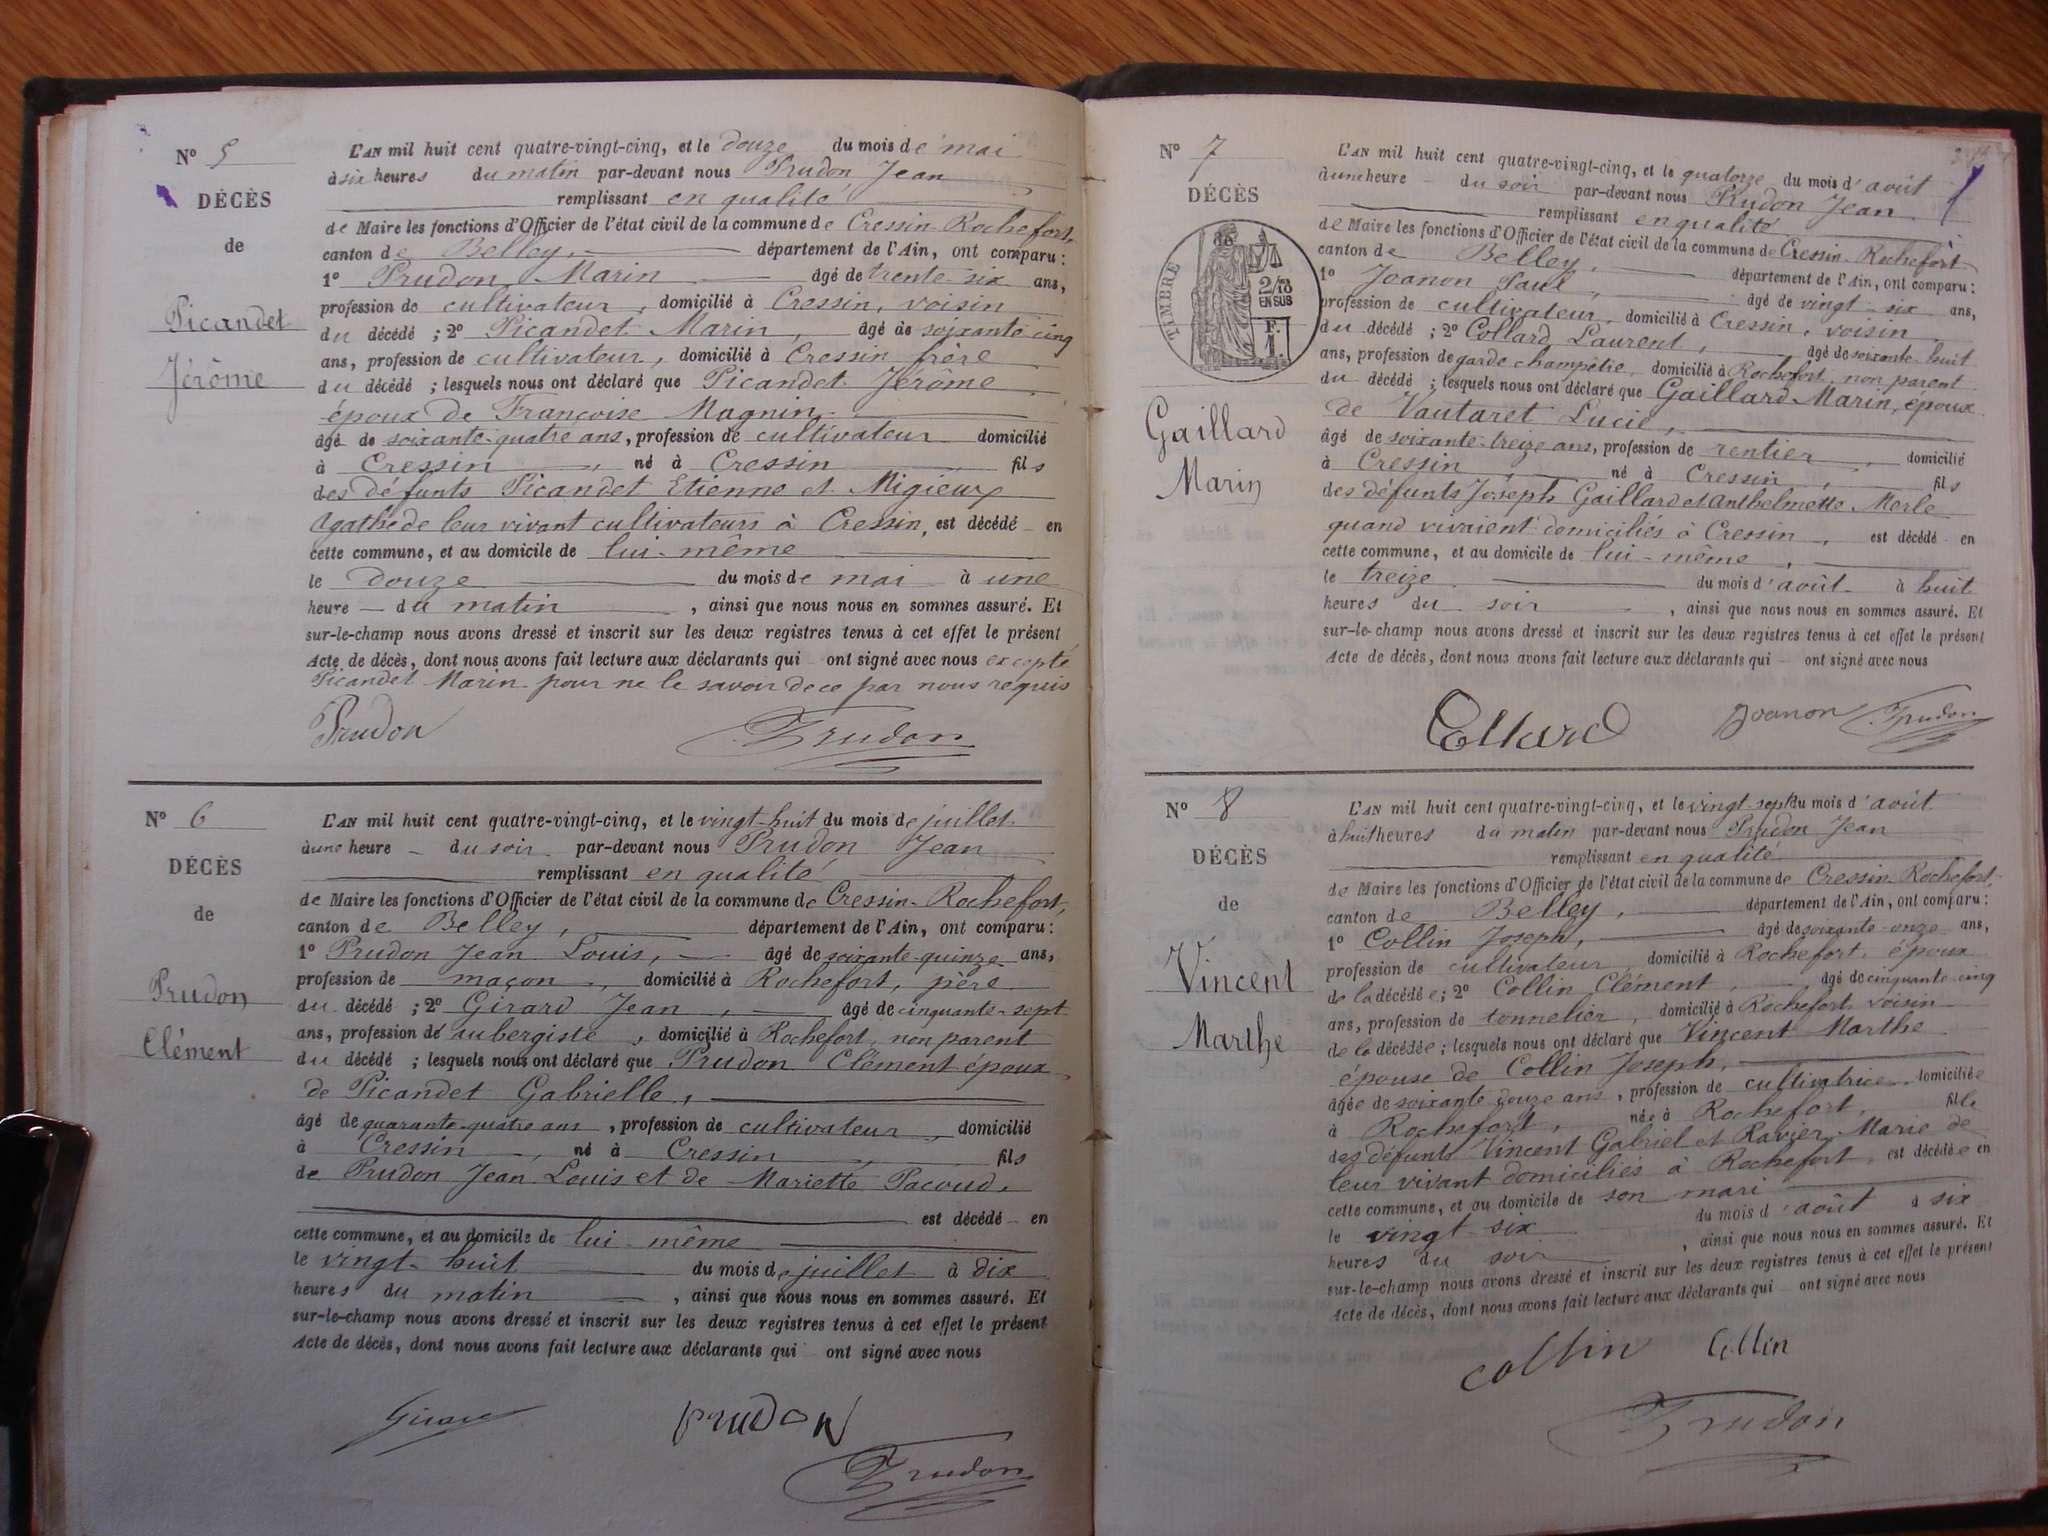 N° 5
DÉCÈS
de
Picandet
Jérôme
L'AN mil huit cent quatre-vingt-cinq, et le douze du mois de mai
à six heures du matin par-devant nous Prudon Jean
remplissant en qualité
de Maire les fonctions d'Officier de l'état civil de la commune de Cressin-Rochefort,
canton de Belley, département de l'Ain, ont comparu :
1° Prudon Marin âgé de trente-six ans,
profession de cultivateur, domicilié à Cressin, voisin
du décédé ; 2° Picandet Marin, âgé de soixante cinq
ans, profession de cultivateur, domicilié à Cressin frère
du décédé ; lesquels nous ont déclaré que Picandet Jérôme
époux de Françoise Magnin
âgé de soixante-quatre ans, profession de cultivateur domicilié
à Cressin, né à Cressin fils
des défunts Picandet Etienne et Migieux
Agathe de leur vivant cultivateurs à Cressin, est décédé en
cette commune, et au domicile de lui-même
le douze du mois de mai à une
heure du matin, ainsi que nous nous en sommes assuré. Et
sur-le-champ nous avons dressé et inscrit sur les deux registres tenus à cet effet le présent
Acte de décès, dont nous avons fait lecture aux déclarants qui ont signé avec nous excepté
Picandet Marin pour ne le savoir de ce par nous requis
Prudon Prudon
N° 6
DÉCÈS
de
Prudon
Clément
L'AN mil huit cent quatre-vingt-cinq, et le vingt-huit du mois de juillet
à une heure du soir par-devant nous Prudon Jean
remplissant en qualité
de Maire les fonctions d'Officier de l'état civil de la commune de Cressin-Rochefort,
canton de Belley, département de l'Ain, ont comparu :
1° Prudon Jean Louis, âgé de soixante-quinze ans,
profession de maçon, domicilié à Rochefort, père
du décédé ; 2° Girard Jean, âgé de cinquante-sept
ans, profession de aubergiste, domicilié à Rochefort, non parent
du décédé ; lesquels nous ont déclaré que Prudon Clément époux
de Picandet Gabrielle,
âgé de quarante-quatre ans, profession de cultivateur, domicilié
à Cressin, né à Cressin, fils
de Prudon Jean Louis et de Mariette Pacoud,
est décédé en
cette commune, et au domicile de lui-même
le vingt-huit du mois de juillet à dix
heures du matin, ainsi que nous nous en sommes assuré. Et
sur-le-champ nous avons dressé et inscrit sur les deux registres tenus à cet effet le présent
Acte de décès, dont nous avons fait lecture aux déclarants qui ont signé avec nous
Girard Prudon
Prudon
N° 7
DÉCÈS
TIMBRE
2/10
EN SUS
F.
1.
Gaillard
Marin
L'AN mil huit cent quatre-vingt-cinq, et le quatorze du mois d'août
à une heure du soir par-devant nous Prudon Jean
remplissant en qualité
de Maire les fonctions d'Officier de l'état civil de la commune de Cressin-Rochefort
canton de Belley, département de l'Ain, ont comparu :
1° Joanon Paul, âgé de vingt-six ans,
profession de cultivateur, domicilié à Cressin, voisin
du décédé ; 2° Collard Laurent, âgé de soixante-huit
ans, profession de garde champêtre, domicilié à Rochefort, non parent
du décédé ; lesquels nous ont déclaré que Gaillard Marin, époux
de Vautaret Lucie,
âgé de soixante-treize ans, profession de rentier, domicilié
à Cressin, né à Cressin, fils
des défunts Joseph Gaillard et Anthelmette Merle
quand vivaient domiciliés à Cressin, est décédé en
cette commune, et au domicile de lui-même,
le treize du mois d'août à huit
heures du soir, ainsi que nous nous en sommes assuré. Et
sur-le-champ nous avons dressé et inscrit sur les deux registres tenus à cet effet le présent
Acte de décès, dont nous avons fait lecture aux déclarants qui ont signé avec nous
Collard Joanon Prudon
N° 8
DÉCÈS
de
Vincent
Marthe
L'AN mil huit cent quatre-vingt-cinq, et le vingt-sept du mois d'août
à huit heures du matin par-devant nous Prudon Jean
remplissant en qualité
de Maire les fonctions d'Officier de l'état civil de la commune de Cressin-Rochefort,
canton de Belley, département de l'Ain, ont comparu :
1° Collin Joseph, âgé de soixante-onze ans,
profession de cultivateur, domicilié à Rochefort, époux
de la décédée ; 2° Collin Clément, âgé de cinquante-cinq
ans, profession de tonnelier, domicilié à Rochefort voisin
de la décédée ; lesquels nous ont déclaré que Vincent Marthe
épouse de Collin Joseph,
âgée de soixante-douze ans, profession de cultivatrice, domiciliée
à Rochefort, née à Rochefort, fille
des défunts Vincent Gabriel et Ravier Marie de
leur vivant domiciliés à Rochefort, est décédée en
cette commune, et au domicile de son mari
le vingt-six du mois d'août à six
heures du soir, ainsi que nous nous en sommes assuré. Et
sur-le-champ nous avons dressé et inscrit sur les deux registres tenus à cet effet le présent
Acte de décès, dont nous avons fait lecture aux déclarants qui ont signé avec nous
Collin Collin
Prudon